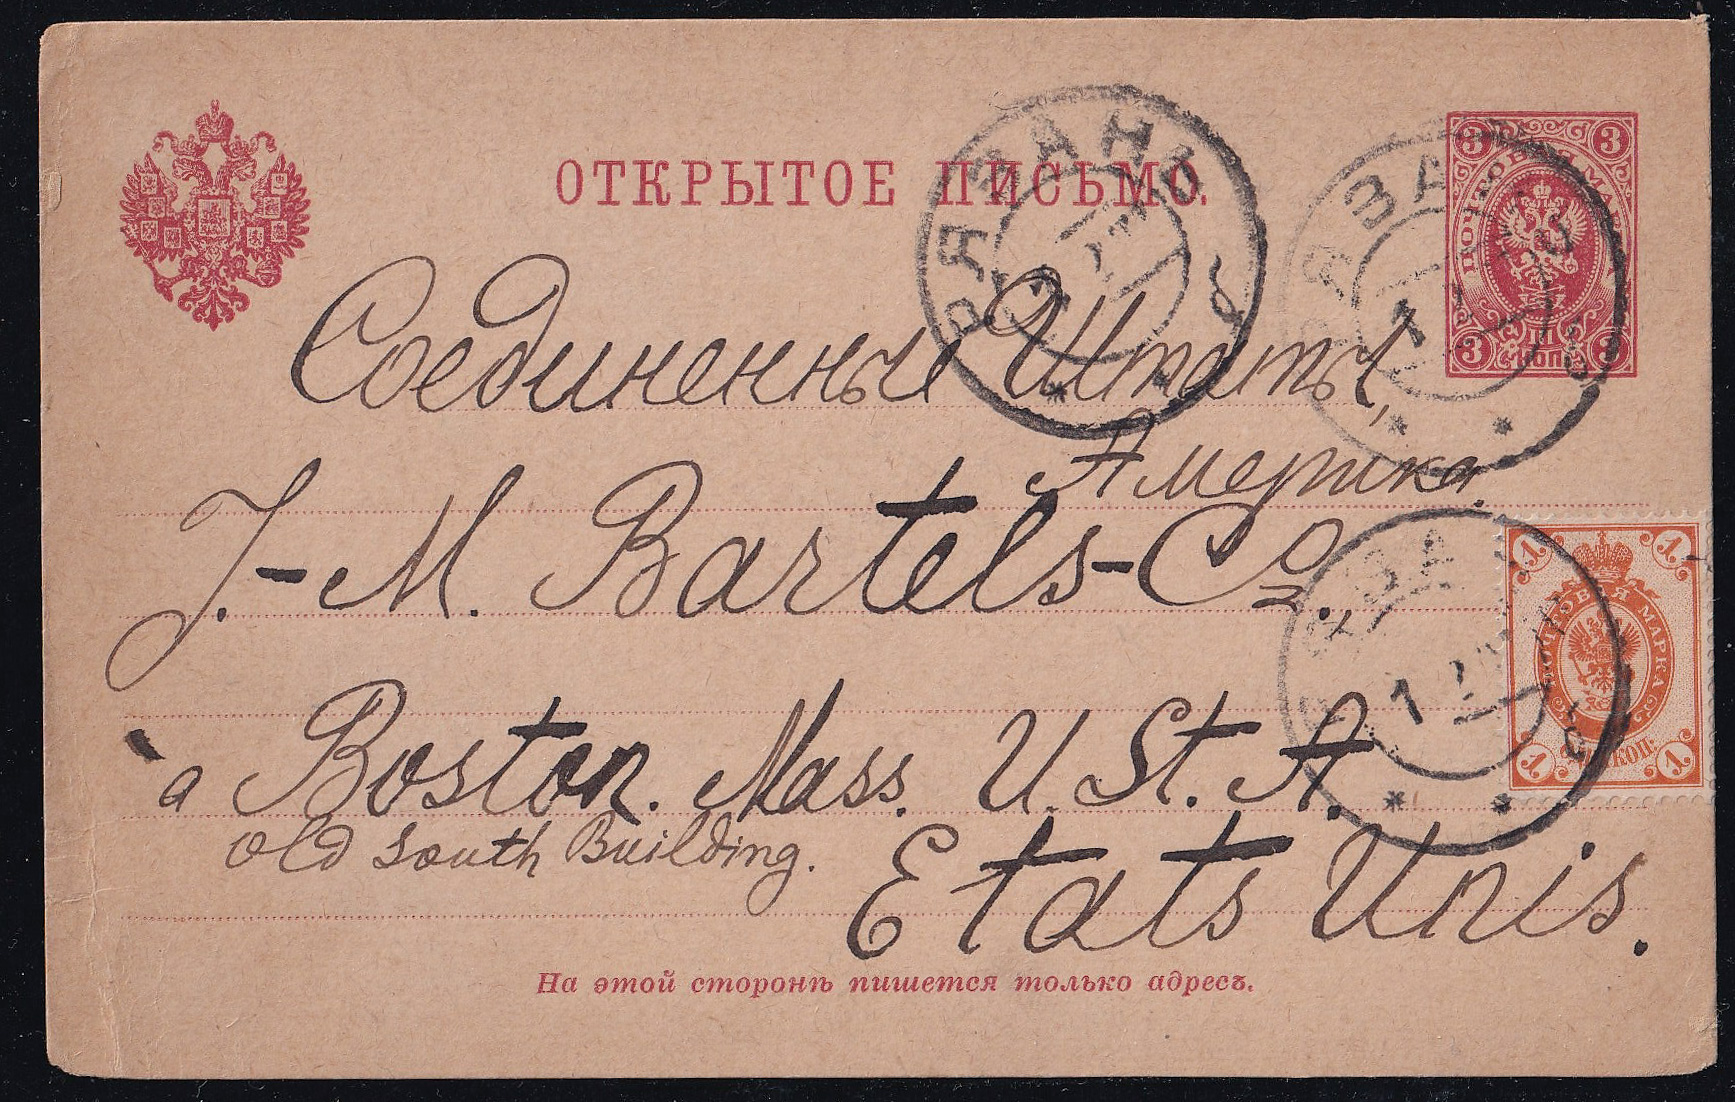 ОТКРЫТОЕ ПИСЬМО.
3 3
ПОЧТОВАЯ МАРКА
3 КОП. 3
РЯЗАНЬ
РЯЗА
1
Соединенны Штаты,
Америка.
J.-M. Bartels-Co.,
1 1
ПОЧТОВАЯ МАРКА
1 КОП. 1
РЯЗА
1
a Boston. Mass. U. St. A.
Old South Building.
Etats Unis.
На этой сторонѣ пишется только адресъ.